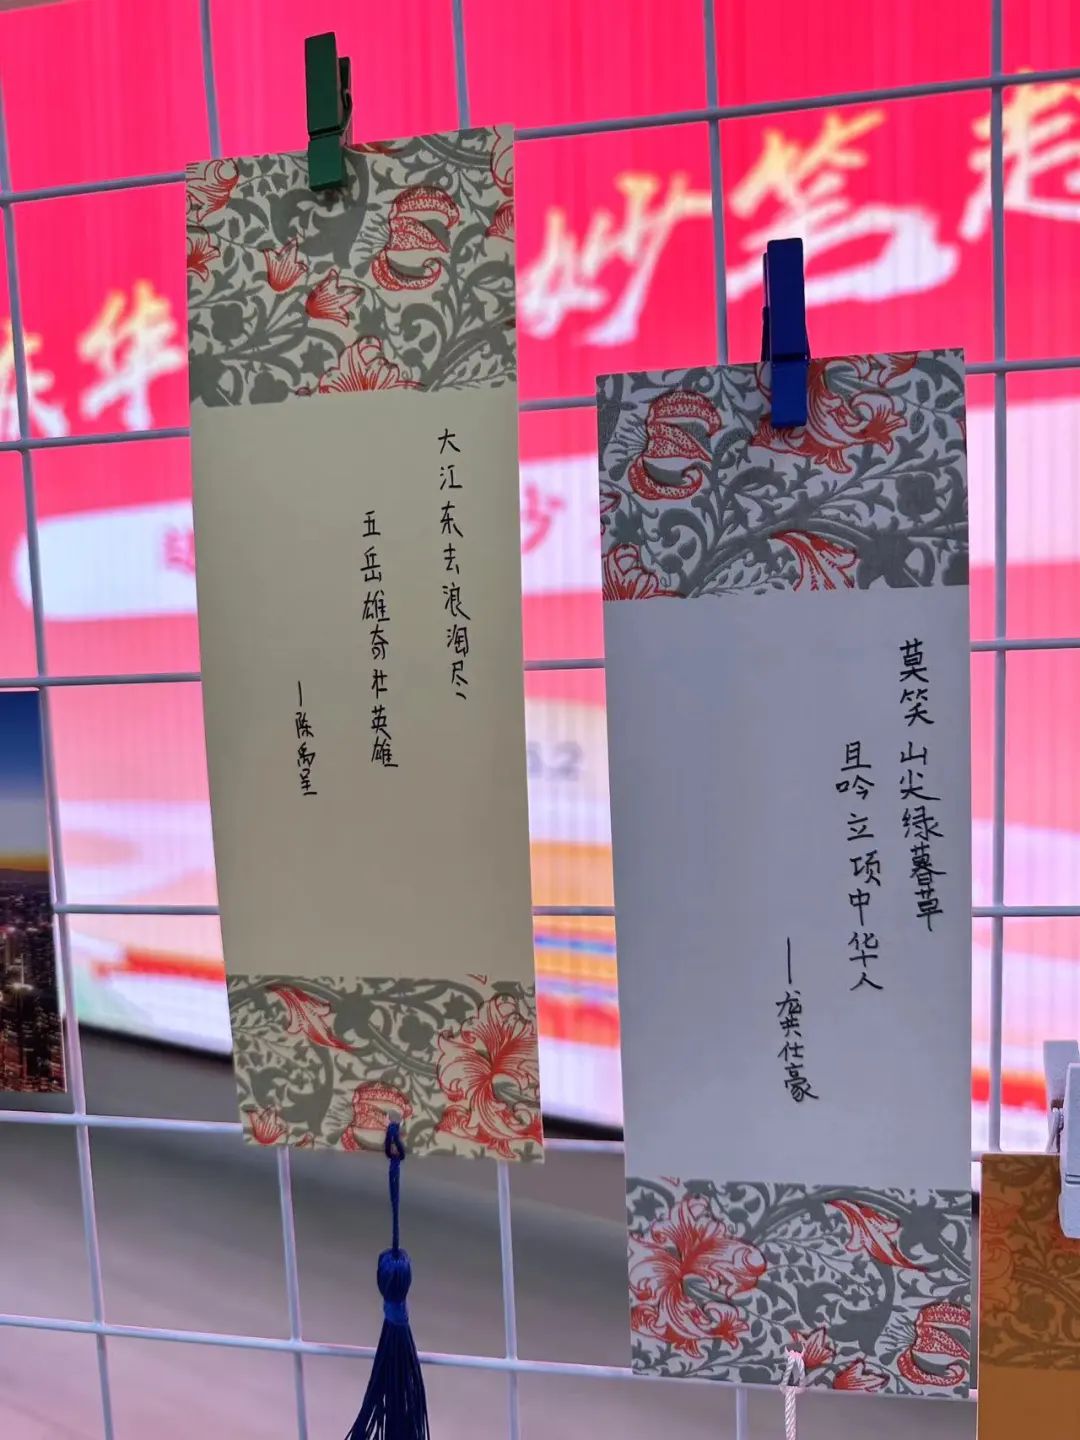 华 妙笔
大江东去浪淘尽
五岳雄奇壮英雄
—陈禹呈
莫笑山尖绿暮草
且吟立项中华人
—龚仕豪